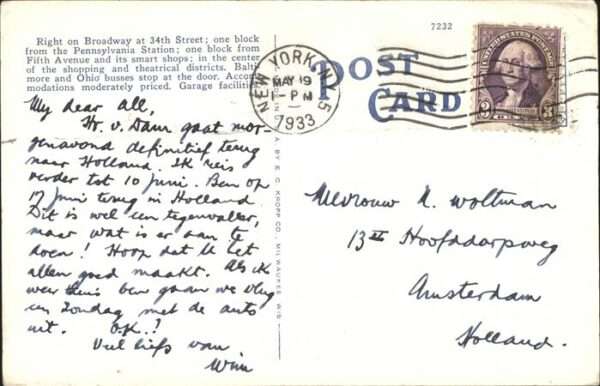 Right on Broadway at 34th Street; one block
from the Pennsylvania Station; one block from
Fifth Avenue and its smart shops; in the center
of the shopping and theatrical districts. Balti
more and Ohio busses stop at the door. Accom
modations moderately priced. Garage facilities
My dear all,
Hr. v. Dam gaat mor-
genavond definitief terug
naar Holland. Ik reis
verder tot 10 Juni. Ben op
17 Juni terug in Holland
Dit is wel een tegenvaller,
maar wat is er aan te
doen! Hoop dat U het
allen goed maakt. Als ik
weer thuis ben gaan we vlug
een Zondag met de auto
uit. OK.!
Veel liefs van
Wim
A. BY E. C. KROPP CO., MILWAUKEE, WIS.
7232
POST
CARD
NEW YORK, N.Y. 5
MAY 19
1-PM
1933
UNITED STATES POSTAGE
3 3
Mevrouw N. Woltman
13II Hoofddorpweg
Amsterdam
Holland.